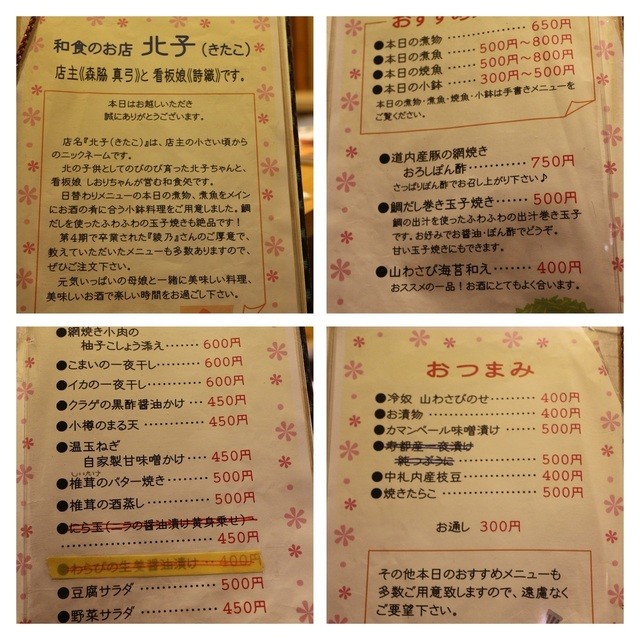 和食のお店 北子(きたこ)
店主《森脇 真弓》と 看板娘《詩織》です。
本日はお越しいただき
誠にありがとうございます。
店名『北子(きたこ)』は、店主の小さい頃から
のニックネームです。
北の子供としてのびのび育った北子ちゃんと、
看板娘 しおりちゃんが営む和食処です。
日替わりメニューの本日の煮物、煮魚をメイン
にお酒の肴に合う小鉢料理をご用意しました。鯛
だしを使ったふわふわの玉子焼きも絶品です!
第4期で卒業された『綾乃』さんのご厚意で、
教えていただいたメニューも多数ありますので、
ぜひご注文下さい。
元気いっぱいの母娘と一緒に美味しい料理、
美味しいお酒で楽しい時間をお過ごし下さい。
おすすめ
●本日の煮物 ………… 650円
●本日の煮魚 …… 500円~800円
●本日の焼魚 …… 500円~800円
●本日の小鉢 …… 300円~500円
本日の煮物・煮魚・焼魚・小鉢は手書きメニューを
ご覧ください。
●道内産豚の網焼き
おろしぽん酢………… 750円
さっぱりぽん酢でお召し上がり下さい♪
●鯛だし巻き玉子焼き…… 500円
鯛の出汁を使ったふわふわの出汁巻き玉子
です。お好みでお醤油・ぽん酢でどうぞ。
甘い玉子焼きにもできます。
●山わさび海苔和え……… 400円
おススメの一品!お酒にとてもよく合います。
●網焼き小肉の
柚子こしょう添え……… 600円
●こまいの一夜干し……… 600円
●イカの一夜干し………… 600円
●クラゲの黒酢醤油かけ… 450円
●小樽のまる天 ………… 450円
●温玉ねぎ
自家製甘味噌かけ…… 450円
しいたけ
●椎茸のバター焼き……… 500円
●椎茸の酒蒸し ………… 500円
●にら玉(ニラの醤油漬け黄身乗せ)
………………………… 450円
●わらびの生姜醤油漬け… 400円
●豆腐サラダ …………… 500円
●野菜サラダ …………… 450円
おつまみ
●冷奴 山わさびのせ…… 400円
●お漬物 ……………… 400円
●カマンベール味噌漬け… 500円
●寿都産一夜漬け
粒つぶうに………… 500円
●中札内産枝豆………… 400円
●焼きたらこ…………… 500円
お通し 300円
その他本日のおすすめメニューも
多数ご用意致しますので、遠慮なく
ご要望下さい。